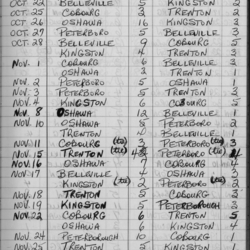 OCT. 22 BELLEVILLE 5 KINGSTON
OCT. 25 COBOURG 3 TRENTON 2
OCT. 26 OSHAWA 16 KINGSTON 2
OCT. 27 PETERBORO 5 BELLEVILLE 3
OCT. 28 BELLEVILLE 9 COBOURG 5
KINGSTON 4 TRENTON
NOV. 1 COBOURG 6 BELLEVILLE 3
OSHAWA 3 TRENTON 1
NOV. 2 PETERBORO 5 KINGSTON 2
NOV. 3 PETERBORO 5 TRENTON 2
NOV. 4 KINGSTON 6 COBOURG 5
NOV. 8 OSHAWA 12 BELLEVILLE 1
NOV. 10 OSHAWA 8 PETERBORO 2
TRENTON BELLEVILLE 1
NOV. 11 COBOURG 3 PETERBORO 2
NOV. 15 TRENTON 4 PETERBORO 4
NOV. 16 OSHAWA 7 COBOURG
NOV. 17 BELLEVILLE 4 OSHAWA 3
KINGSTON 2 PETERBORO 2
NOV. 18 TRENTON 5 COBOURG 2
NOV. 19 KINGSTON 5 PETERBOROUGH 3
NOV. 22 COBOURG 6 TRENTON 5
OSHAWA 6 KINGSTON
NOV. 24 PETERBOROUGH 10 COBOURG
NOV. 25 TRENTON 5 KINGSTON